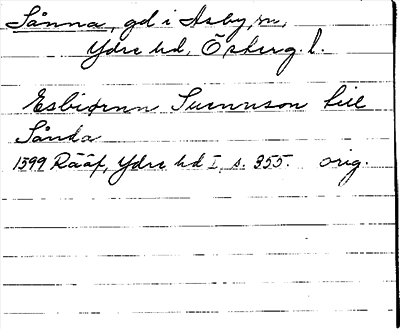 Sånna, gd i Asby, sn,
Ydre hd, Österg. l.
Esbiørnn Suennson till
Sånda
1599 Rääf, Ydre hd I, s. 355. orig.